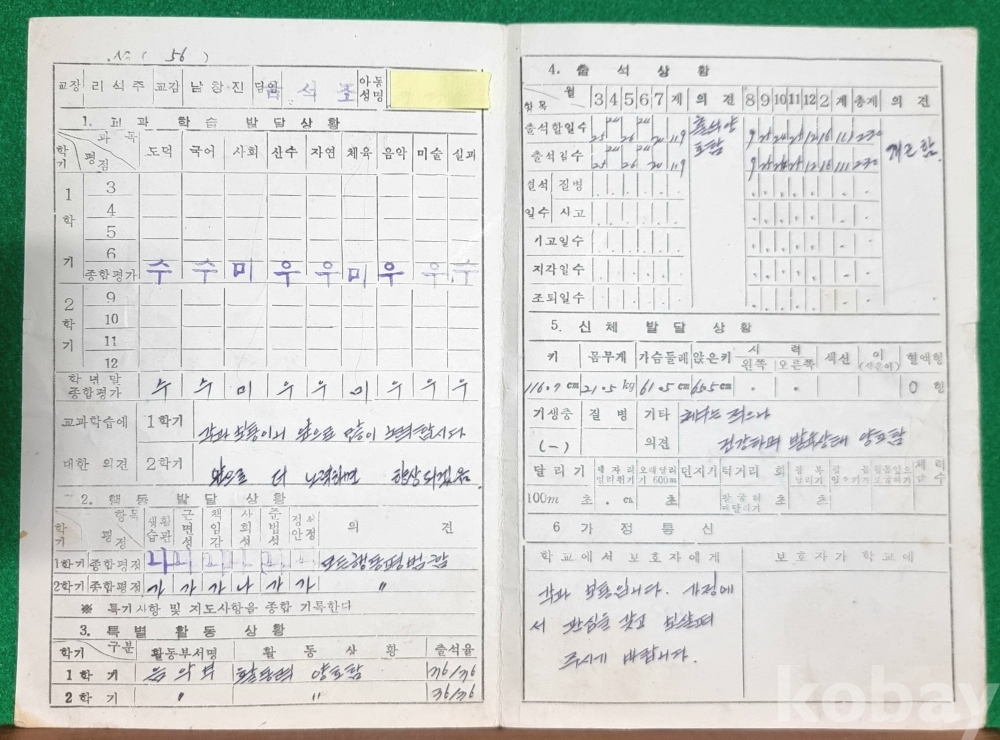 № ( 56 )
교장 리석주 교감 남창진 담임 석조 아동성명
1. 교과 학습 발달상황
학기 과목 평점 도덕 국어 사회 산수 자연 체육 음악 미술 실과
1학기
3
4
5
6
종합평가 수 수 미 우 우 미 우 우 수
2학기
9
10
11
12
학년말 종합평가 수 수 미 우 우 미 우 우 우
교과학습에 대한 의견
1학기 각과 보통이니 앞으로 많이 노력합시다
2학기 앞으로 더 노력하면 향상되겠음.
2. 행동 발달 상황
학기 항목 평정 생활습관 근면성 책임감 사회성 준법성 정서안정 의 견
1학기 종합평정 나
2학기 종합평정 가 가 가 나 가 가 〃
※ 특기사항 및 지도사항을 종합 기록한다
3. 특별 활동 상황
학기 구분 활동부서명 활 동 상 황 출석율
1 학 기 음악부 양호함 76/76
2 학 기 〃 〃 76/76
4. 출 석 상 황
항목 월 3 4 5 6 7 계 의 견 8 9 10 11 12 2 계 총계 의 견
출석할일수 25 24 26 24 20 119 출석 양호함 9 25 24 25 12 16 111 230 개근함.
출석일수 25 24 26 24 20 119 9 25 24 25 12 16 111 230
결석일수 질병
사고
기고일수
지각일수
조퇴일수
5. 신체 발달 상황
키 몸무게 가슴둘레 앉은키 시력 왼쪽 오른쪽 색신 이 (썩은이) 혈액형
116.7 cm 21.5 kg 61.5 cm 65.5 cm O 형
기생충 질병 기타 의견
(-) 건강하며 발육상태 양호함
달리기 제자리 멀리뛰기 오래달리기 600m 던지기 턱걸이 회 팔굽혀 매달리기 체력 급수
100m 초 . cm 초 초
6 가 정 통 신
학교에서 보호자에게 보호자가 학교에
각과 보통입니다. 가정에
서 관심을 갖고 보살펴
주시게 바랍니다.
kobay